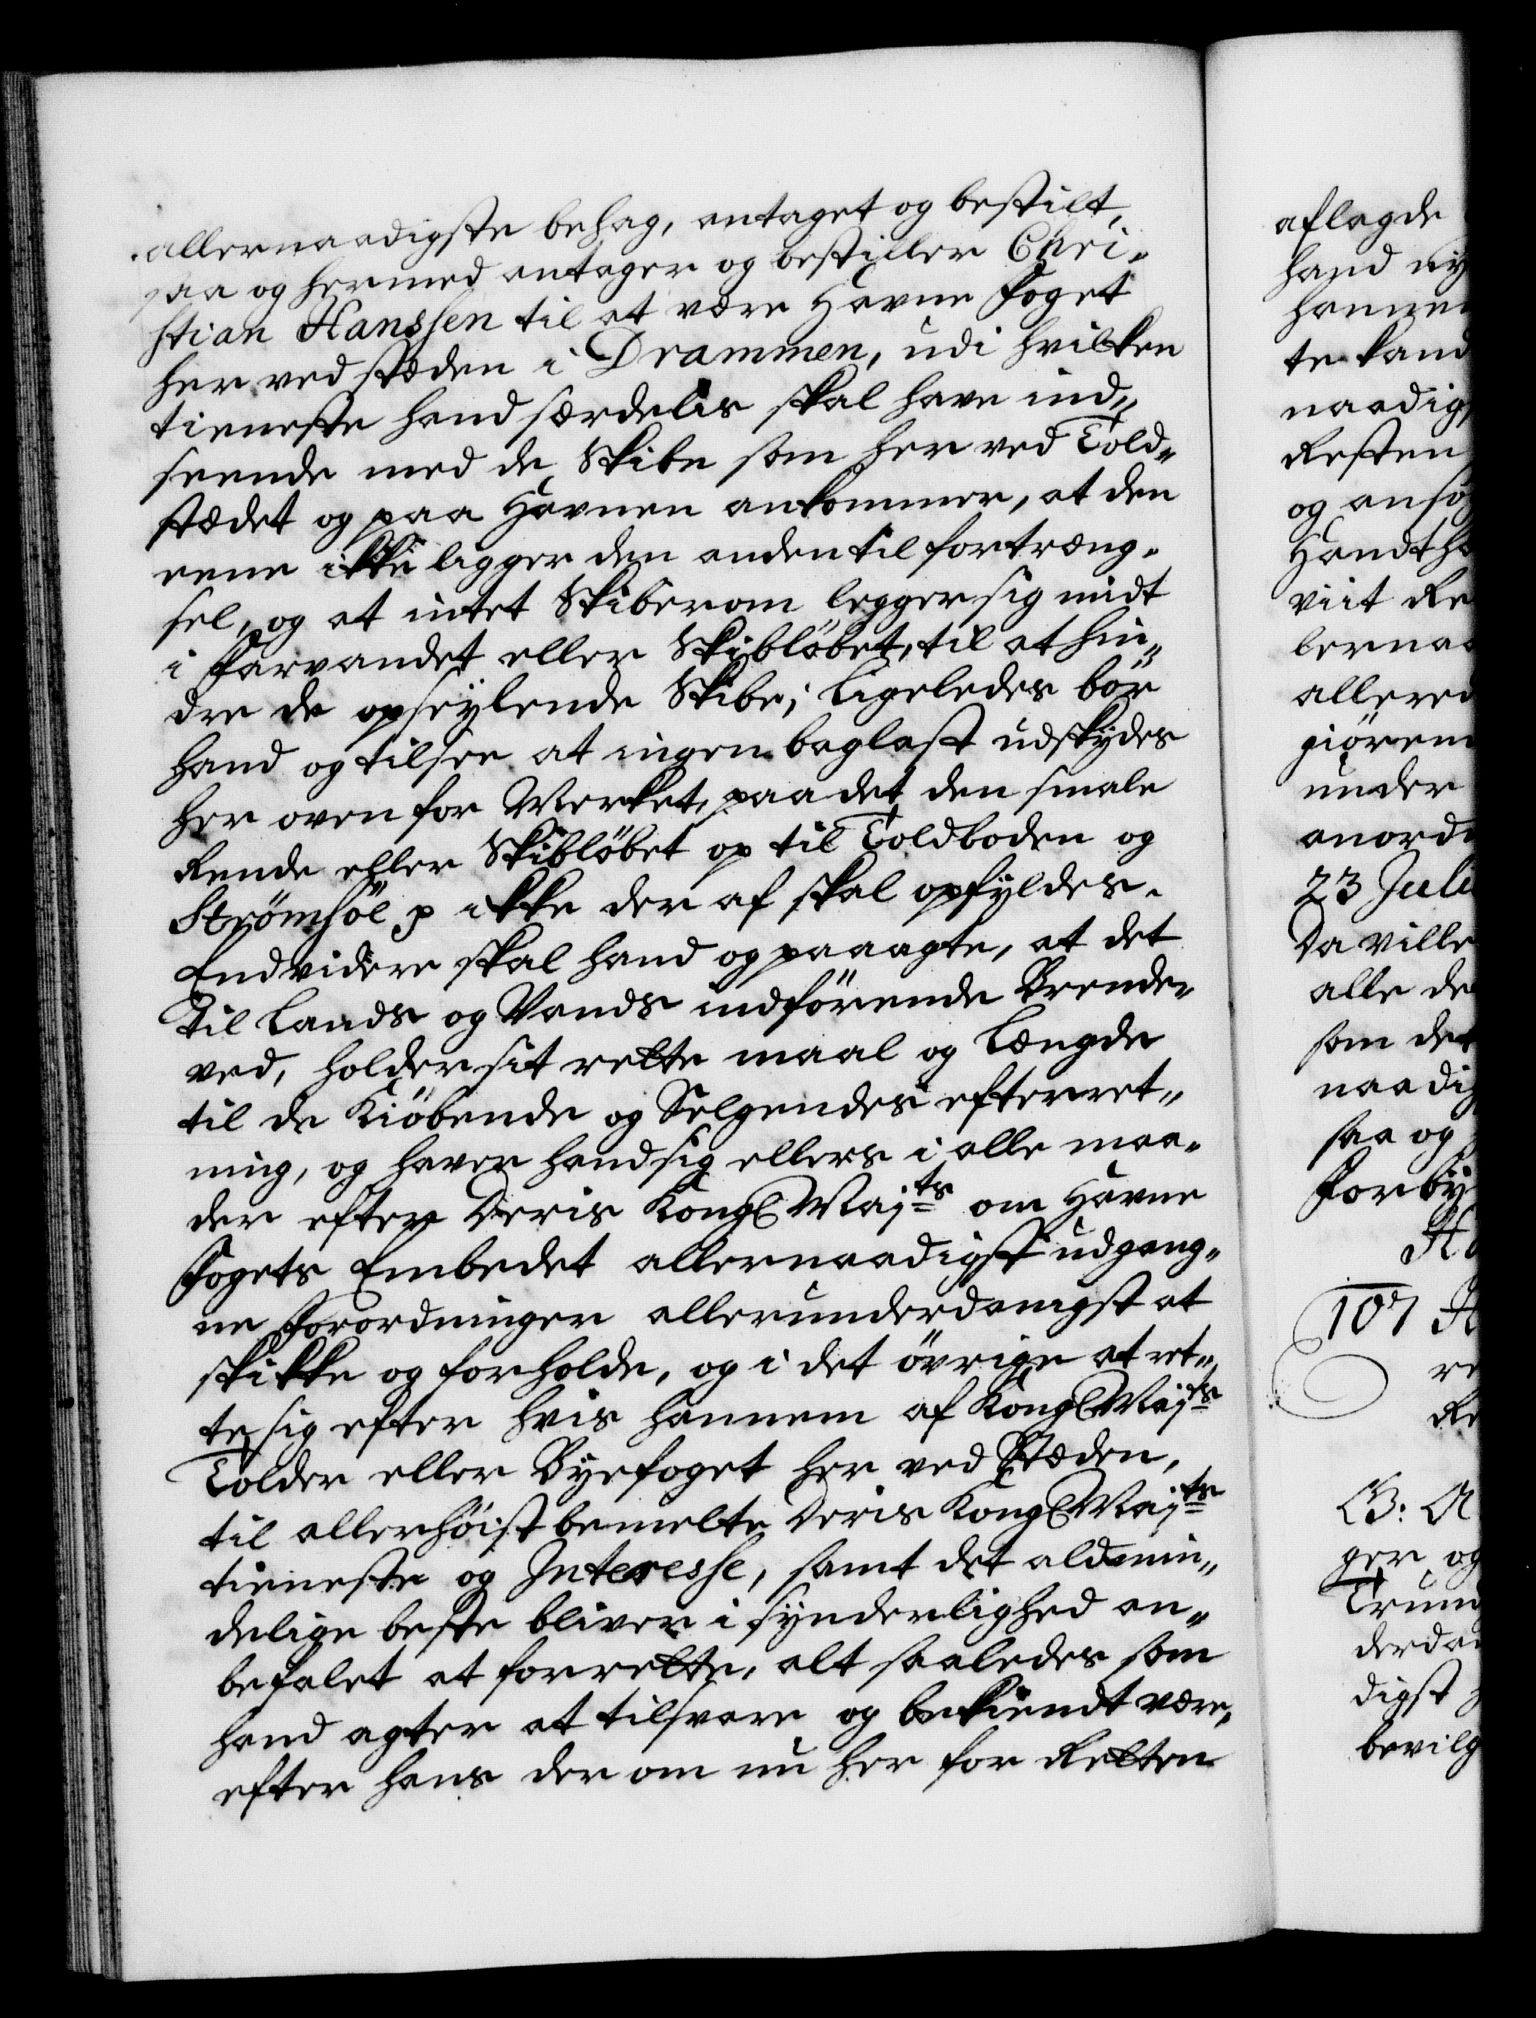 allernaadigste behag, antaget og bestilt,
saa og hermed antager og bestiller Chri-
stian Hanssen til at være Havne Foget
her ved stæden i Drammen, udi hvilken
tieneste hand særdelis skal have ind-
seende med de Skibe som her ved Told-
stædet og paa Havnen ankommer, at den
eene ikke ligger den anden til fortræng-
sel, og at intet Skiberom legger sig midt
i Farvandet eller Skibløbet, til at hin-
dre de opseylende Skibe; Ligeledes bør
hand og tilsee at ingen baglast udskydes
her oven for Merket, paa det den smale
Rende eller Skibløbet op til Toldboden og
Strømsöe p ikke der af skal opfyldes.
Endvidere skal hand og paaagte, at det
til Lands og Vands indførende Brende-
ved, holder sit rette maal og Længde
til de Kiöbende og Selgendes efterret-
ning, og haver hand sig ellers i alle maa-
der efter Deris Kongl Majts om Havne
Fogets Embedet allernaadigst udgang-
ne Forordninger allerunderdanigst at
skikke og forholde, og i det övrige at ret-
te sig efter hvis hannem af Kongl Majts
Tolder eller Byefoget her ved Stæden,
til allerhöist bemelte Deris Kongl Majts
tieneste og Interesse, samt det almin-
delige beste bliver i synderlighed an-
befalet at forrette, alt saaledes som
hand agter at tilsvare og bekiendt være,
efter hans der om nu her for Retten
aflagde
hand ny
hannem
te kand
naadigs
Resten
og ansø
Handthæ
viit Re
lernaa
allered
giören
under
anord
23 Juli
Da ville
alle de
som det
naadig
saa og
Forby
Ha
107 H
re
Re
B: A
ger og
Trun
derda
digst
bevilg